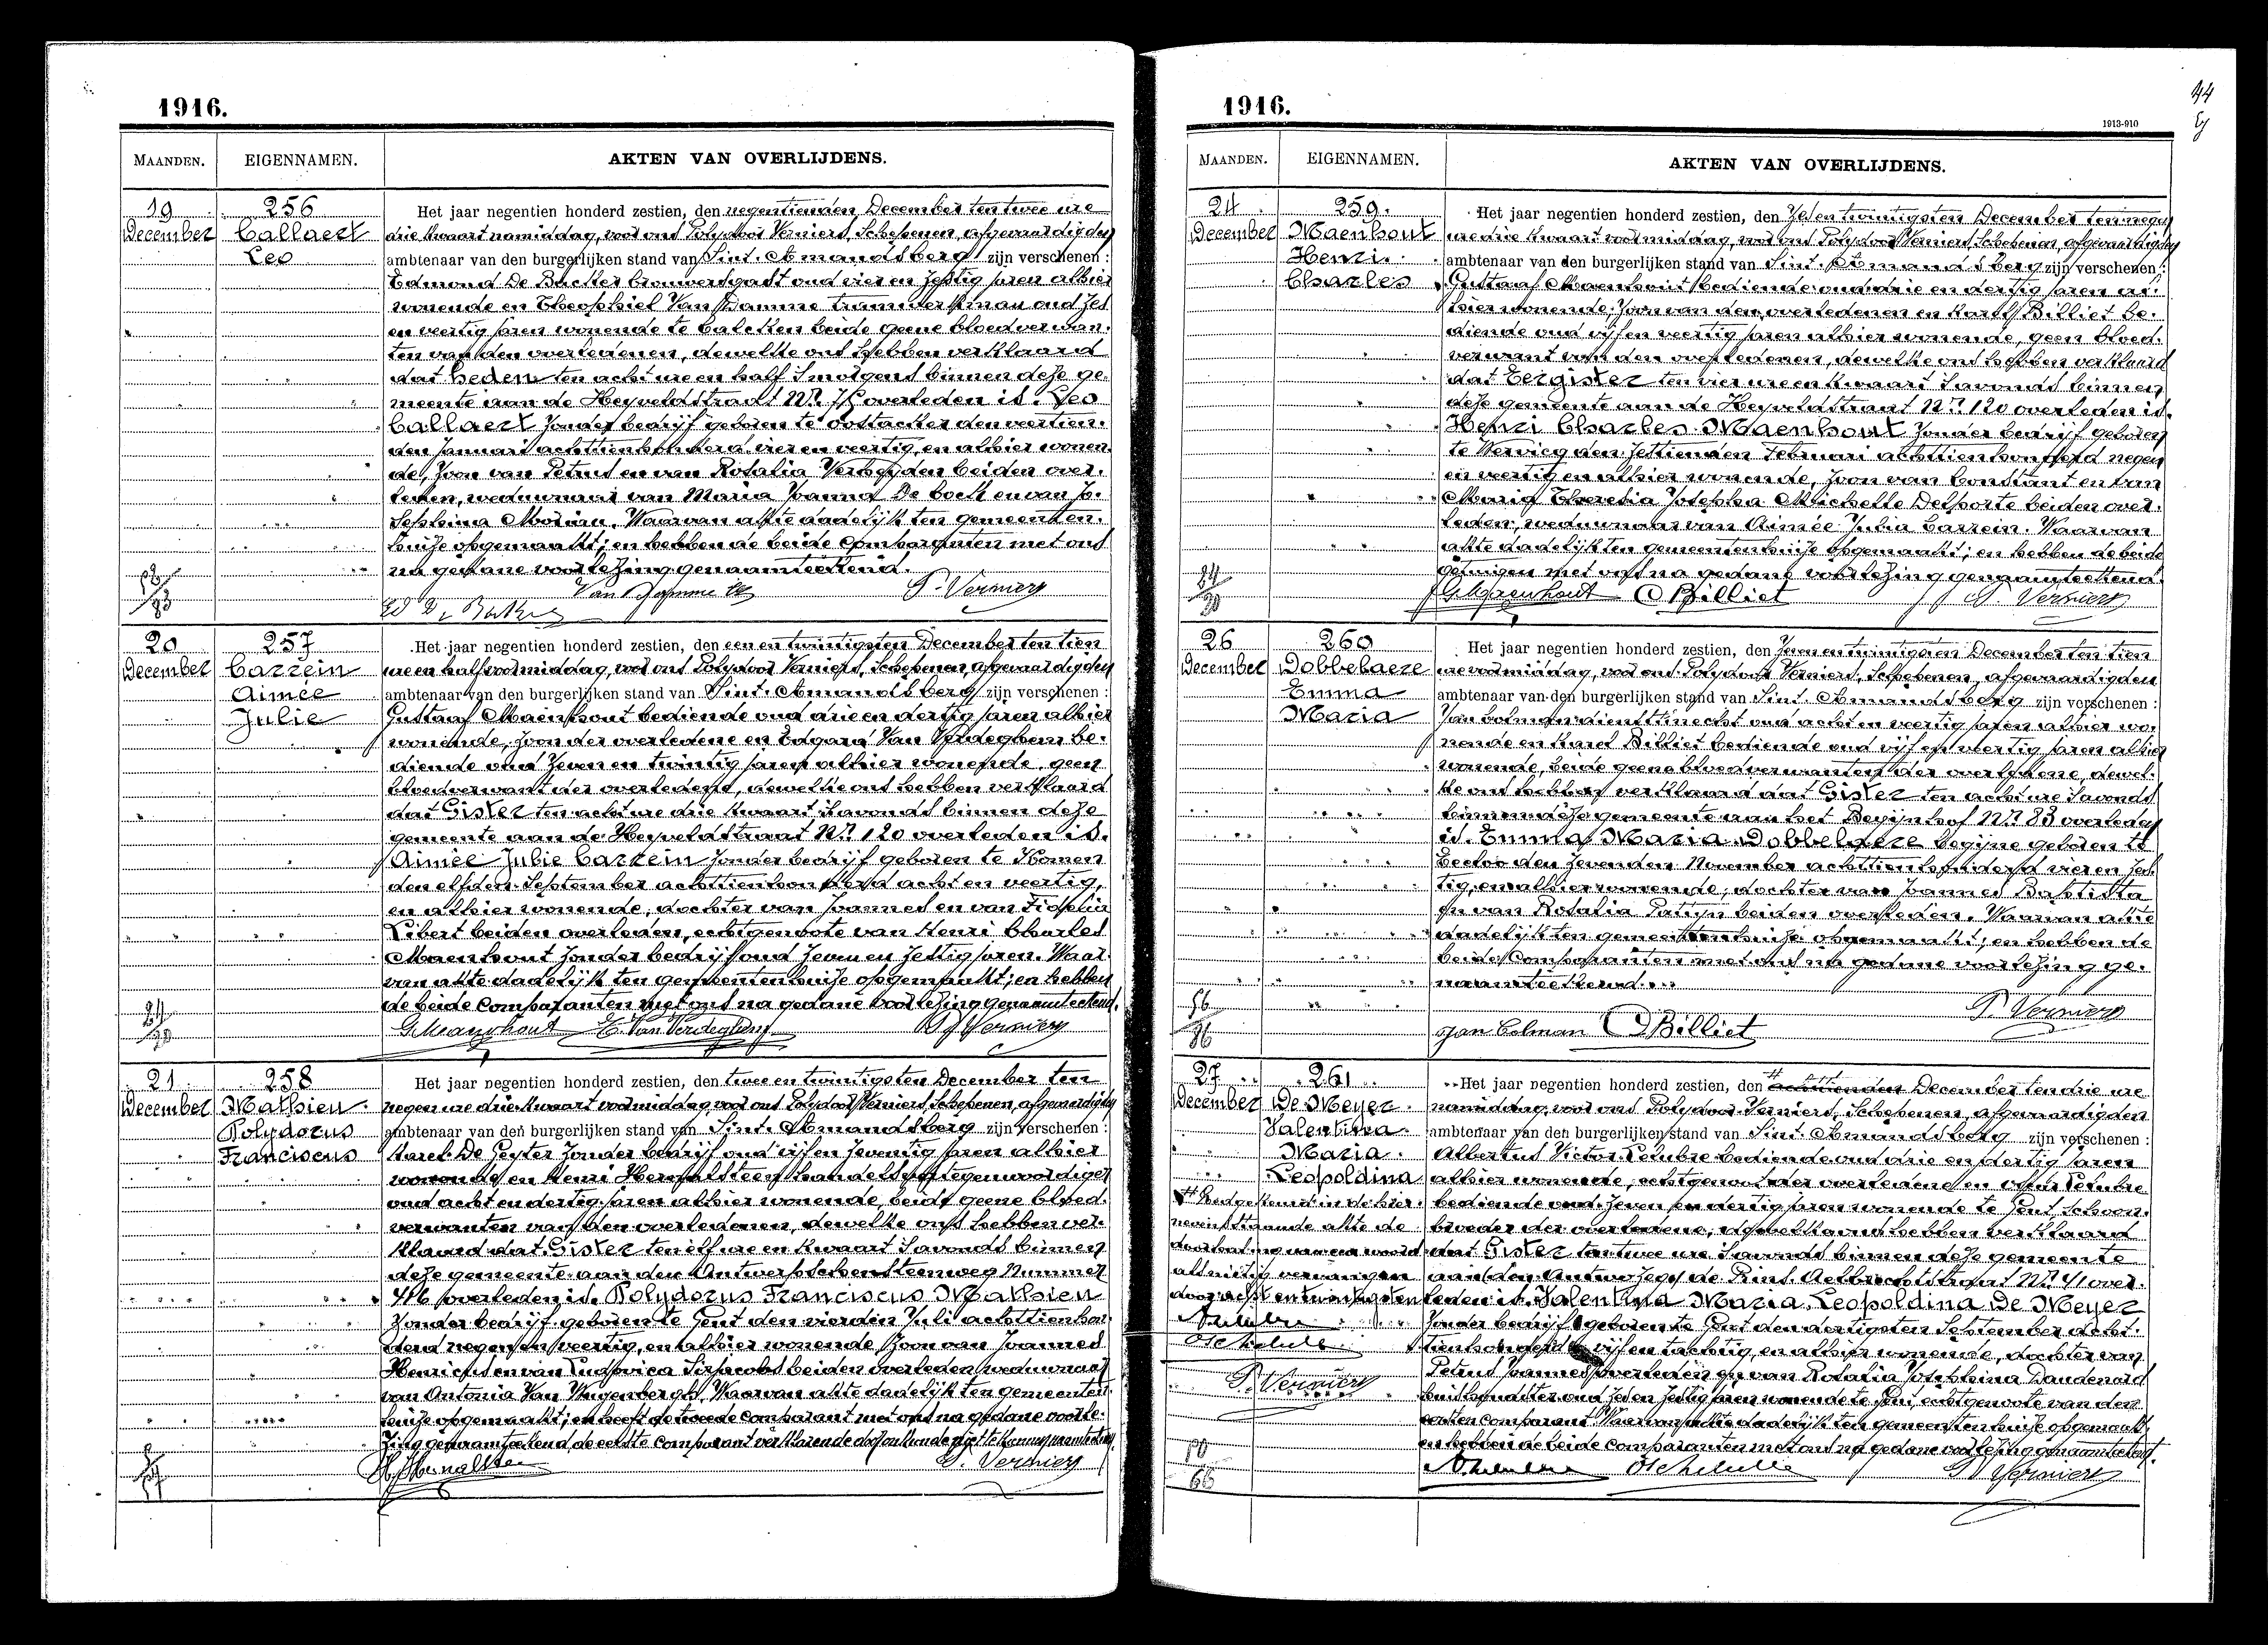 1916.
MAANDEN. EIGENNAMEN. AKTEN VAN OVERLIJDENS.
19 December
256
Callaert
Leo
Het jaar negentien honderd zestien, den negentienden December ten twee ure
drie kwaart namiddag, voor ons Polydoor Verniers, Schepenen, afgevaardigden
ambtenaar van den burgerlijken stand van Sint. Amandsberg zijn verschenen :
Edmond De Backer brouwersgast oud vier en zestig jaren alhier
wonende en Theophiel Van Damme oud zes
en veertig jaren wonende te beide geene bloedverwan-
ten van den overledenen, dewelke ons hebben verklaard
dat heden ten acht ure en half smorgens binnen deze ge-
meente aan de Heyveldstraat Nr. overleden is. Leo
Callaert zonder bedrijf geboren te Oostacker den veertien-
den Januari achttien honderd vier en veertig, en alhier wonen-
de, zoon van Petrus en van Rosalia beiden over-
leden, weduwnaar van Maria Joanna De Cock en van Jo-
sephina Morian. Waarvan akte dadelijk ten gemeenten-
huize opgemaakt; en hebben de beide comparanten met ons
na gedane voorlezing genaamteekend.
Ed De Backer Van Damme Th P. Verniers
20 December
257
Carrein
Aimée
Julie
Het jaar negentien honderd zestien, den een en twintigsten December ten tien
ure en half voormiddag, voor ons Polydoor Verniers, Schepenen, afgevaardigden
ambtenaar van den burgerlijken stand van Sint. Amandsberg zijn verschenen :
Gustaaf Maenhout bediende oud drie en dertig jaren alhier
wonende, zoon der overledene en Edgard Van Verdeghem be-
diende oud zeven en twintig jaren alhier wonende, geen
bloedverwant der overledene, dewelke ons hebben verklaard
dat Gister ten acht ure drie kwaart savonds binnen deze
gemeente aan de Heyveldstraat Nr. 120 overleden is.
Aimée Julie Carrein zonder bedrijf geboren te Komen
den elfden September achttien honderd acht en veertig,
en alhier wonende, dochter van Joannes en van
Libert beiden overleden, echtgenoote van Henri Charles
Maenhout zonder bedrijf oud zeven en zestig jaren. Waar-
van akte dadelijk ten gemeentenhuize opgemaakt; en hebben
de beide comparanten met ons na gedane voorlezing genaamteekend.
G. Maenhout E. Van Verdeghem P. Verniers
21 December
258
Mathien
Polydorus
Franciscus
Het jaar negentien honderd zestien, den twee en twintigsten December ten
negen ure drie kwaart voormiddag, voor ons Polydoor Verniers, Schepenen, afgevaardigden
ambtenaar van den burgerlijken stand van Sint. Amandsberg zijn verschenen :
Karel De Geyter zonder bedrijf oud vijf en zeventig jaren alhier
wonende en Henri handelsvertegenwoordiger
oud acht en dertig jaren alhier wonende, beide geene bloed-
verwanten van den overledenen, dewelke ons hebben ver-
klaard dat Gister ten elf ure en kwaart savonds binnen
deze gemeente aan den Antwerpschensteenweg Nummer
overleden is. Polydorus Franciscus Mathien
zonder bedrijf geboren te Gent den vierden Juli achttien hon-
derd negen en veertig, en alhier wonende, zoon van Joannes
Henricus en van Ludovica beiden overleden, weduwnaar
van Antonia Van Waarvan akte dadelijk ten gemeenten-
huize opgemaakt; en heeft de tweede comparant met ons na gedane voorle-
zing genaamteekend, de eerste comparant verklarende
P. Verniers
1916.
1913-910
44
MAANDEN. EIGENNAMEN. AKTEN VAN OVERLIJDENS.
24 December
259.
Maenhout
Henri
Charles
Het jaar negentien honderd zestien, den zes en twintigsten December ten negen
ure drie kwaart voormiddag, voor ons Polydoor Verniers, Schepenen, afgevaardigden
ambtenaar van den burgerlijken stand van Sint. Amandsberg zijn verschenen :
Gustaaf Maenhout bediende oud drie en dertig jaren al-
hier wonende, zoon van den overledenen en Karel Billiet be-
diende oud vijf en veertig jaren alhier wonende, geen bloed-
verwant van den overledenen, dewelke ons hebben verklaard
dat Eergister ten vier ure en kwaart savonds binnen
deze gemeente aan de Heyveldstraat Nr. 120 overleden is.
Henri Charles Maenhout zonder bedrijf geboren
te Wervicq den zestienden Februari achttien honderd negen
en veertig en alhier wonende, zoon van Constant en van
Maria Theresia Josepha Michelle Delporte beiden over-
leden, weduwnaar van Aimée Julia Carrein. Waarvan
akte dadelijk ten gemeentenhuize opgemaakt; en hebben de beide
getuigen met ons na gedane voorlezing genaamteekend.
G. Maenhout C Billiet P. Verniers
26 December
260
Dobbelaere
Emma
Maria
Het jaar negentien honderd zestien, den zeven en twintigsten December ten tien
ure voormiddag, voor ons Polydoor Verniers, Schepenen, afgevaardigden
ambtenaar van den burgerlijken stand van Sint. Amandsberg zijn verschenen :
Jan Colman dienstknecht oud acht en veertig jaren alhier wo-
nende en Karel Billiet bediende oud vijf en veertig jaren alhier
wonende, beide geene bloedverwanten der overledene, dewel-
ke ons hebben verklaard dat Gister ten acht ure savonds
binnen deze gemeente aan het Begijnhof Nr. 83 overleden
is. Emma Maria Dobbelaere begijne geboren te
Eecloo den zevenden November achttien honderd vier en zes-
tig, en alhier wonende, dochter van Joannes Baptista
en van Rosalia Patijn beiden overleden. Waarvan akte
dadelijk ten gemeentenhuize opgemaakt; en hebben de
beide comparanten met ons na gedane voorlezing ge-
naamteekend...
Jan Colman C Billiet P. Verniers
27 December
261
De Meyer
Valentina
Maria
Leopoldina
Het jaar negentien honderd zestien, den achttienden December ten drie ure
namiddag, voor ons Polydoor Verniers, Schepenen, afgevaardigden
ambtenaar van den burgerlijken stand van Sint. Amandsberg zijn verschenen :
Albertus Victor bediende oud drie en dertig jaren
alhier wonende, echtgenoot der overledene en
bediende oud zeven en dertig jaren wonende te Gent, schoon-
broeder der overledene, dewelke ons hebben verklaard
dat Gister ten twee ure savonds binnen deze gemeente
aan den de Sint. Aelbrechtstraat Nr. 41 over-
leden is. Valentina Maria Leopoldina De Meyer
zonder bedrijf geboren te Gent den dertigsten September acht-
tien honderd vijf en tachtig, en alhier wonende, dochter van
Petrus Joannes overleden en van Rosalia Josephina Daudenard
huishoudster oud zes en zestig jaren wonende te Gent, echtgenoote van den
eersten comparant. Waarvan akte dadelijk ten gemeentenhuize opgemaakt
en hebben de beide comparanten met ons na gedane voorlezing genaamteekend.
Goedgekeurd in de hier-
nevenstaande akte de
doorhaling van een woord
als nietig vervangen
door acht en twintigsten
P. Verniers
P. Verniers